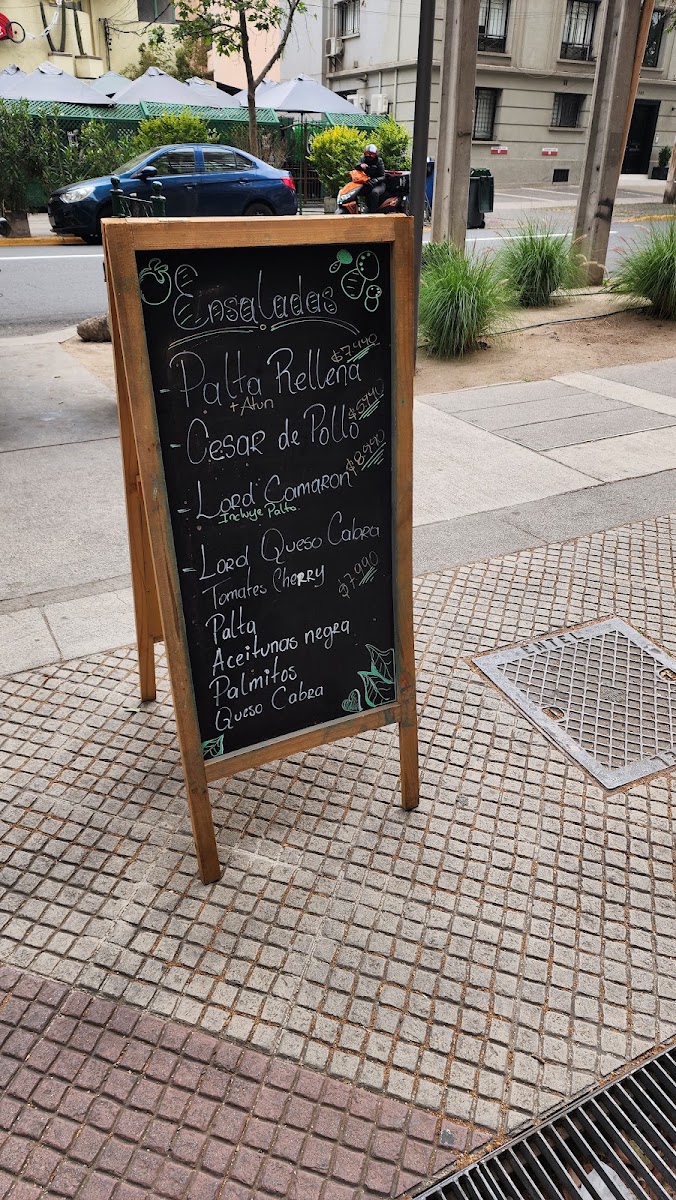 Ensaladas
$7.490
- Palta Rellena
+ Atun
$5.990
- Cesar de Pollo
$8.990
- Lord Camaron
Incluye Palta
- Lord Queso Cabra
Tomates Cherry
$7.990
Palta
Aceitunas negra
Palmitos
Queso Cabra
ENTEL